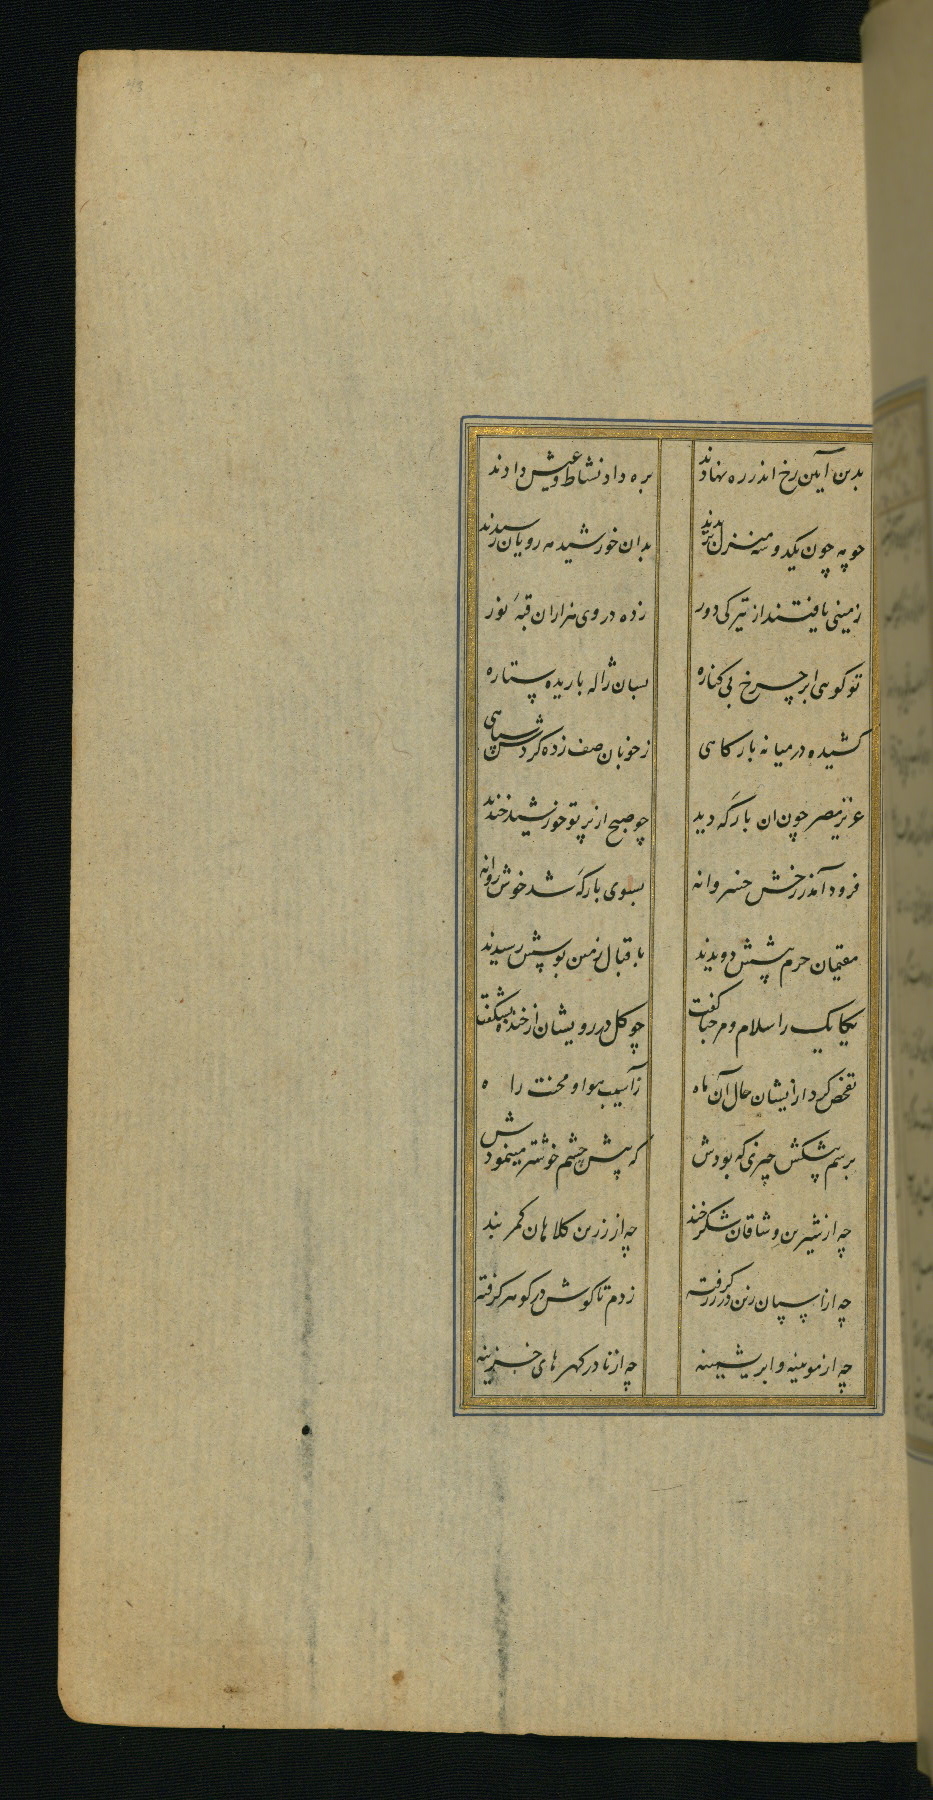 بدین آیین رخ اندر ره نهادند بره داد نشاط و عیش دادند
چو مه چون یکدو سه منزل بریدند بدان خورشید مه رویان رسیدند
زمینی یافتند از تیرگی دور زده در وی هزاران قبهٔ نور
تو گوهی ابر چرخ بی کناره بسان ژاله باریده ستاره
کشیده در میانه بارکاهی ز خوبان صف زده کردش سپاهی
عزیز مصر چون ان بارگه دید چو صبح از پرتو خورشید خندید
فرود آمد ز رخش خسروانه بسوی بارگه شد خوش روانه
مقیمان حرم پیشش دویدند باقبال زمین بوسش رسیدند
یکایک را سلام و مرحبا گفت چو کل در رویشان از خنده بشکفت
تفحص کرد ازیشان حال آن ماه ز آسیب هوا و محنت راه
برسم پیشکش چیزی که بودش که پیش چشم خوشتر مینمودش
چه از شیرین وشاقان شکرخند چه از زرین کلاهان کمر بند
چه از اسپان زین در زر گرفته ز دم تا کوش در کوهر کرفته
چه از موینه و ابریشمینه چه از نادر کهرهای خزینه